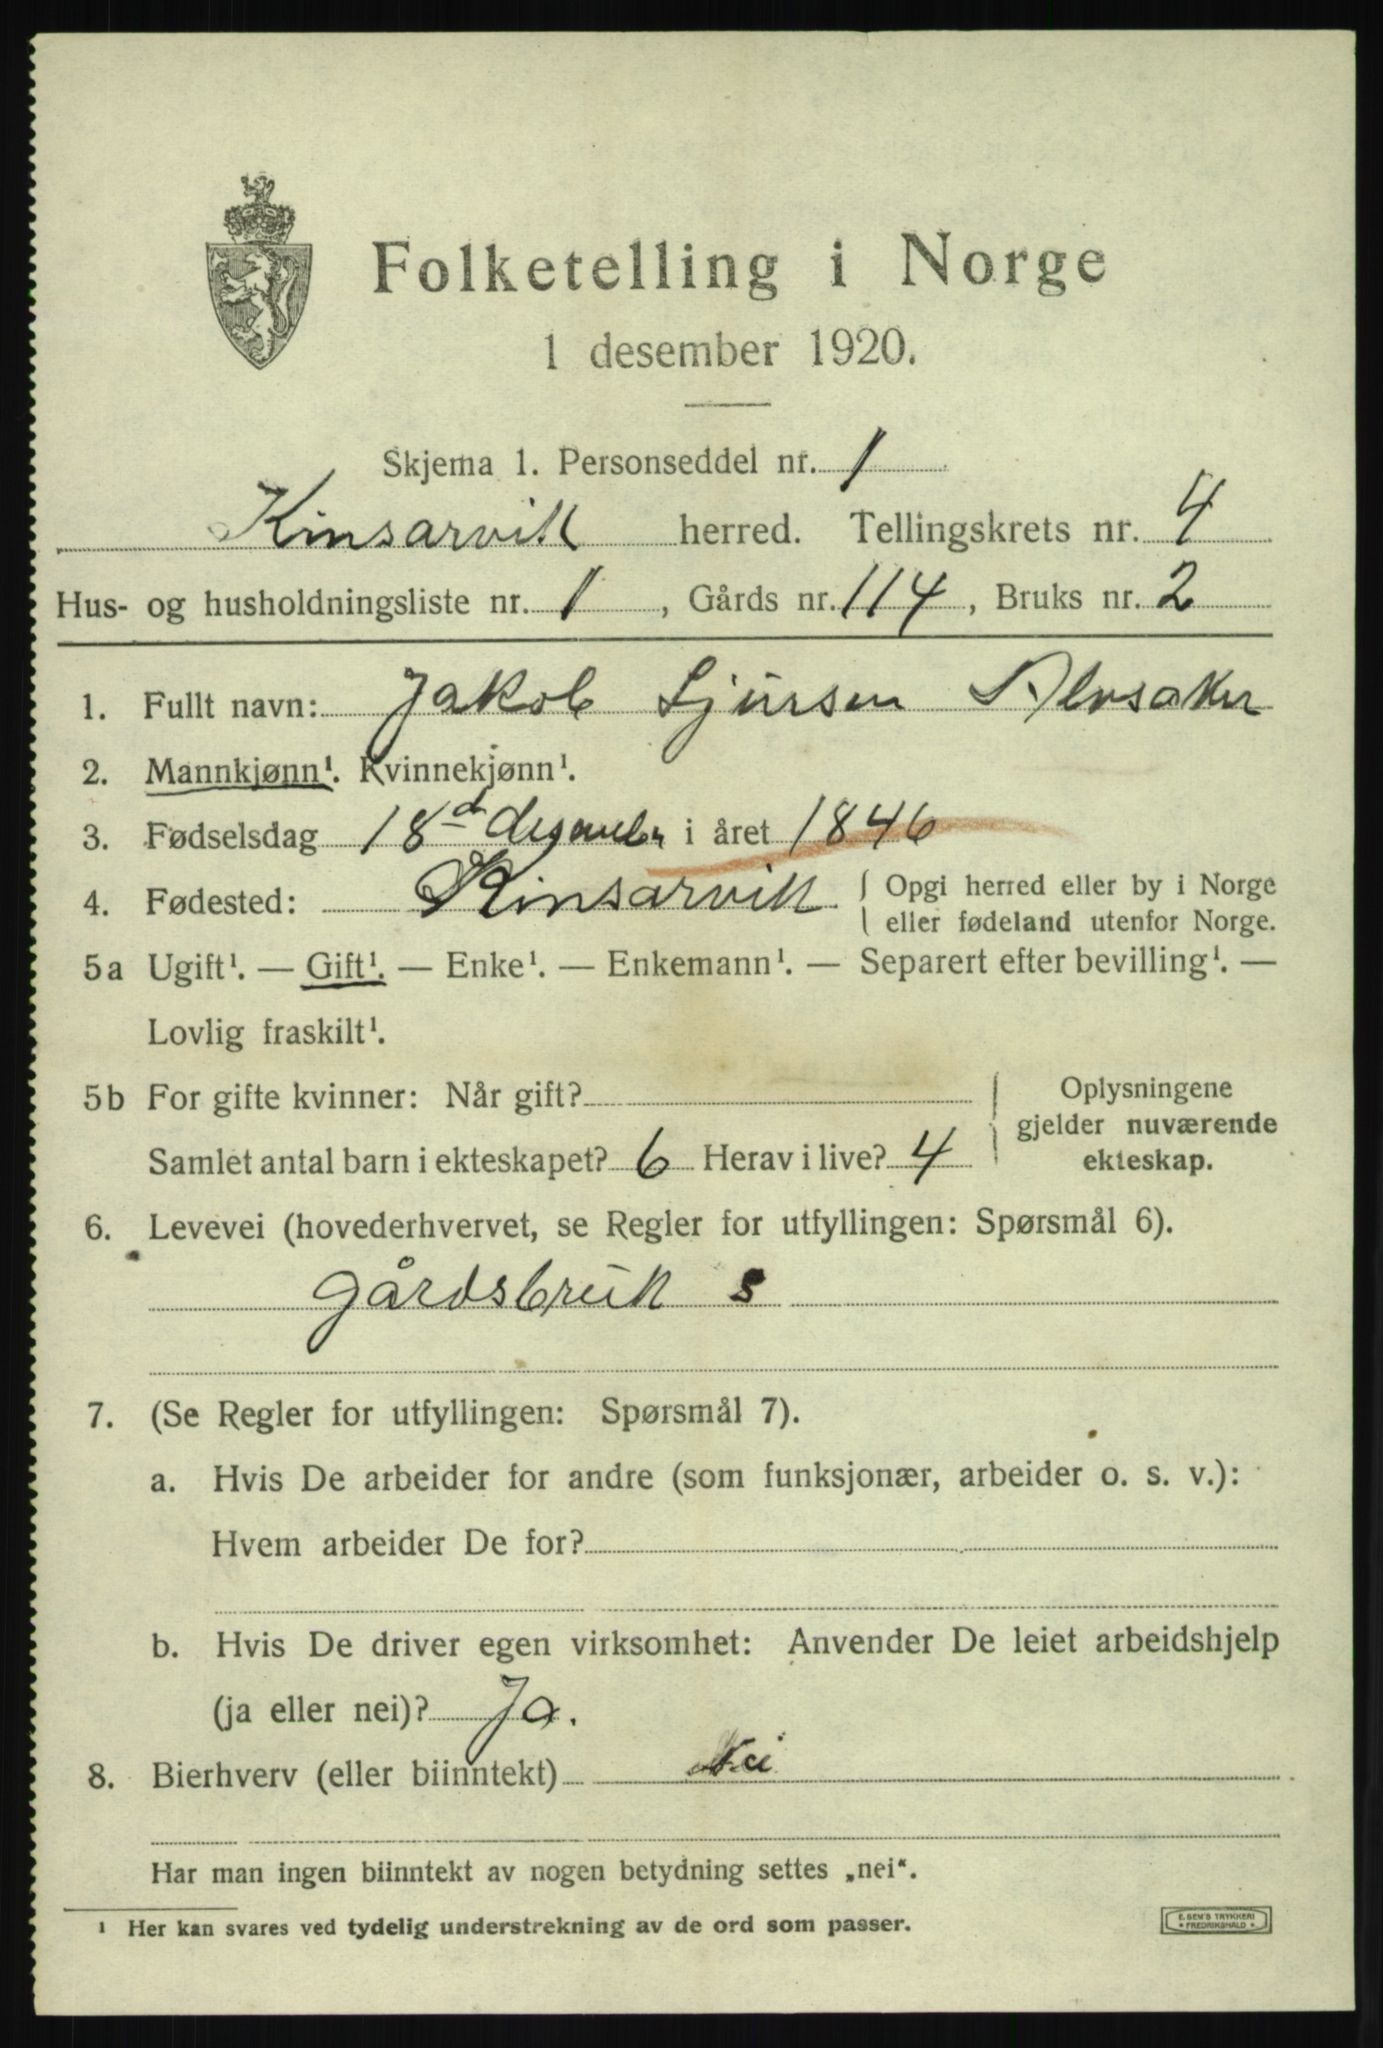 Folketelling i Norge
1 desember 1920.
Skjema 1. Personseddel nr. 1
Kinsarvik herred. Tellingskrets nr. 4
Hus- og husholdningsliste nr. 1, Gårds nr. 114, Bruks nr. 2
1. Fullt navn: Jakob Sjursen Alvsaker
2. Mannkjønn¹. Kvinnekjønn¹.
3. Fødselsdag 18d desember i året 1846
4. Fødested: Kinsarvik { Opgi herred eller by i Norge
eller fødeland utenfor Norge.
5a Ugift¹. — Gift¹. — Enke¹. — Enkemann¹. — Separert efter bevilling¹. —
Lovlig fraskilt¹.
5b For gifte kvinner: Når gift?
Samlet antal barn i ekteskapet? 6 Herav i live? 4
Oplysningene
gjelder nuværende
ekteskap.
6. Levevei (hovederhvervet, se Regler for utfyllingen: Spørsmål 6).
gårdsbruk s
7. (Se Regler for utfyllingen: Spørsmål 7).
a. Hvis De arbeider for andre (som funksjonær, arbeider o. s. v.):
Hvem arbeider De for?
b. Hvis De driver egen virksomhet: Anvender De leiet arbeidshjelp
(ja eller nei)? Ja.
8. Bierhverv (eller biinntekt) Nei
Har man ingen biinntekt av nogen betydning settes „nei“.
¹ Her kan svares ved tydelig understrekning av de ord som passer.
E. SEM'S TRYKKERI
* FREDRIKSHALD *